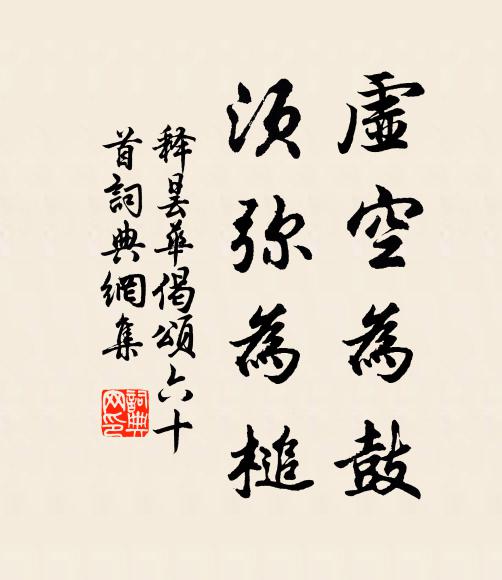 虛空為鼓
須弥為槌
释曇華偈頌六十
首詞典網集
詞典
网印